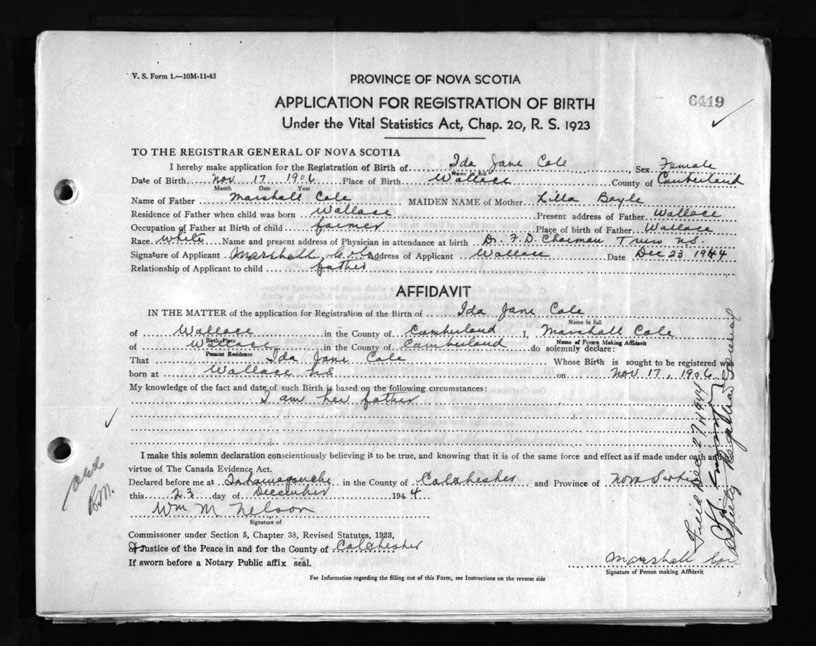 V. S. Form 1.—10M-11-43
PROVINCE OF NOVA SCOTIA
6419
APPLICATION FOR REGISTRATION OF BIRTH
Under the Vital Statistics Act, Chap. 20, R. S. 1923
TO THE REGISTRAR GENERAL OF NOVA SCOTIA
I hereby make application for the Registration of Birth of Ida Jane Cole Sex Female
Date of Birth Nov 17 1906 Place of Birth Wallace County of Cumberland
Month Date Year
Name of Father Marshall Cole MAIDEN NAME of Mother Lilla Boyle
Residence of Father when child was born Wallace Present address of Father Wallace
Occupation of Father at Birth of child farmer Place of birth of Father Wallace
Race white Name and present address of Physician in attendance at birth Dr. F. D. Charman Truro N.S.
Signature of Applicant Marshall Cole Address of Applicant Wallace Date Dec 23 1944
Relationship of Applicant to child father
AFFIDAVIT
IN THE MATTER of the application for Registration of the Birth of Ida Jane Cole
Name in full
of Wallace in the County of Cumberland I, Marshall Cole
Birth Place Name of Person Making Affidavit
of Wallace in the County of Cumberland do solemnly declare:
Present Residence
That Ida Jane Cole Whose Birth is sought to be registered was
born at Wallace NS on Nov 17, 1906
My knowledge of the fact and date of such Birth is based on the following circumstances:
I am her father
I make this solemn declaration conscientiously believing it to be true, and knowing that it is of the same force and effect as if made under oath and by
virtue of The Canada Evidence Act.
Declared before me at Tatamagouche in the County of Colchester and Province of Nova Scotia
this 23 day of December 1944
Wm M. Nelson
Signature of
Commissioner under Section 5, Chapter 38, Revised Statutes, 1923,
Justice of the Peace in and for the County of Colchester
If sworn before a Notary Public affix seal.
Marshall Cole
Signature of Person making Affidavit
For Information regarding the filling out of this Form, see Instructions on the reverse side
Filed Dec 27 1944
Deputy Registrar General